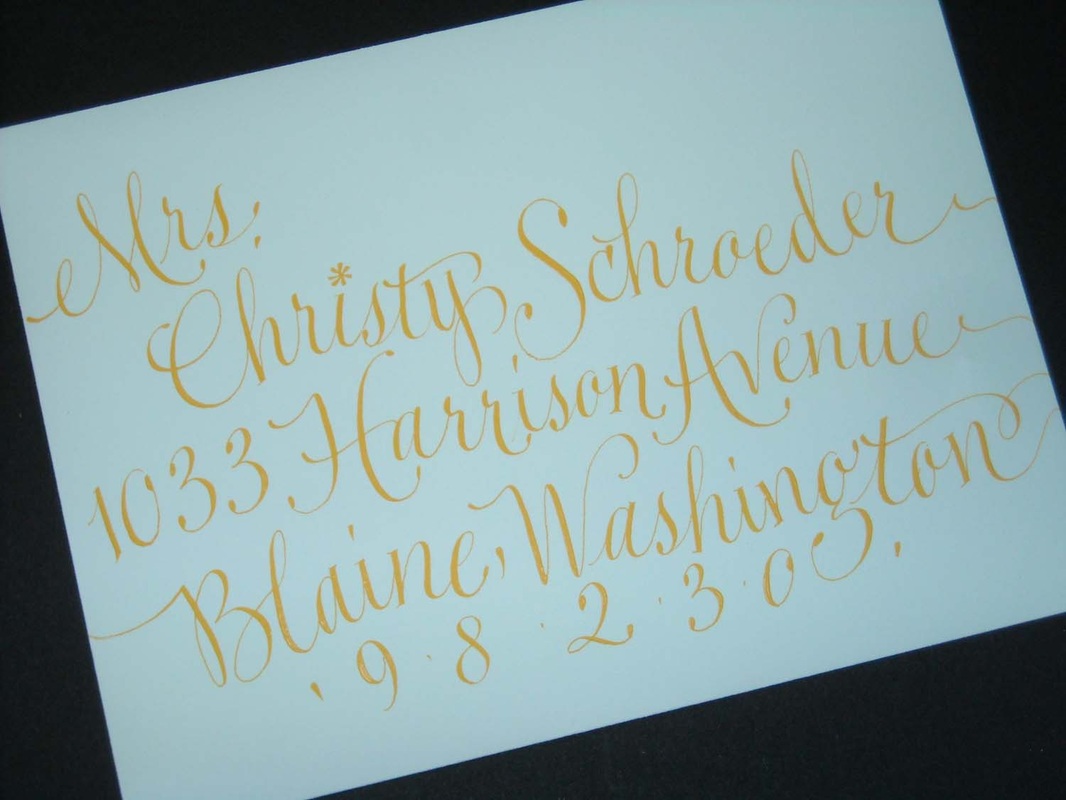 Mrs.
Christy Schroeder
1033 Harrison Avenue
Blaine, Washington
9 · 8 · 2 · 3 · 0